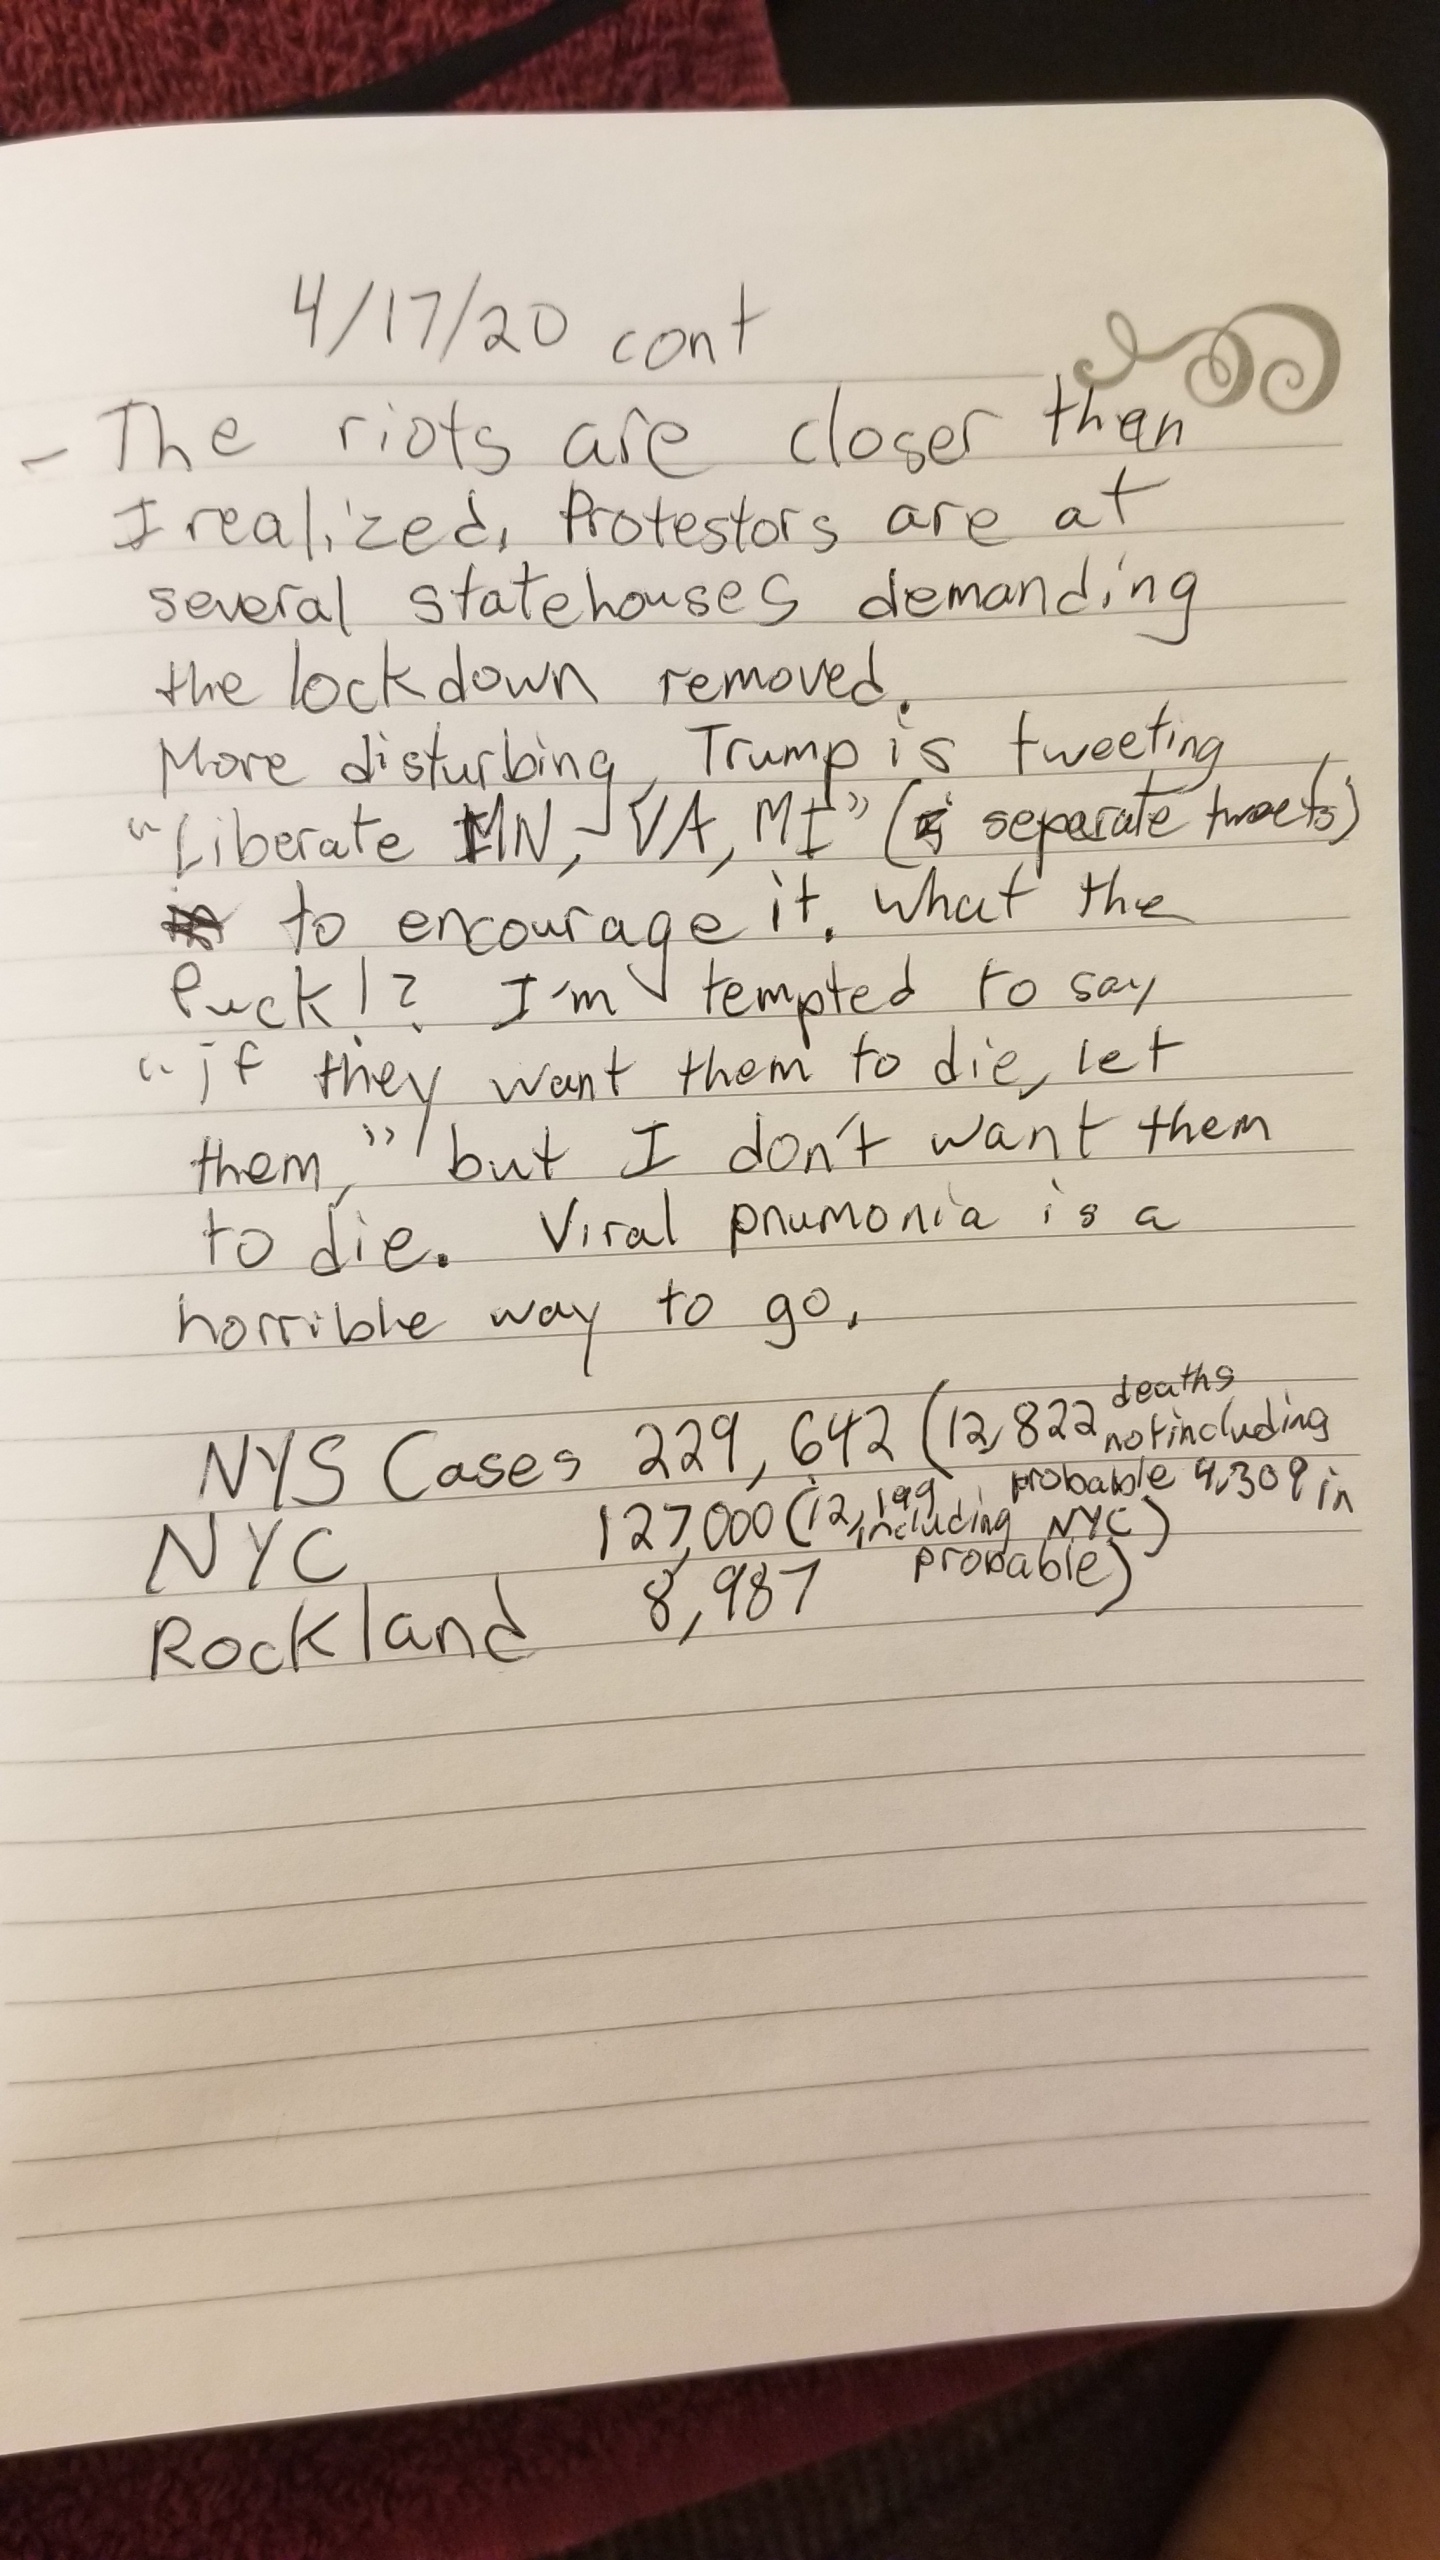 4/17/20 cont
- The riots are closer than
I realized. Protestors are at
several statehouses demanding
the lockdown removed.
More disturbing, Trump is tweeting
"Liberate MN, VA, MI" ( separate tweets)
to encourage it. What the
Fuck!? I'm tempted to say
"if they want them to die, let
them," but I don't want them
to die. Viral pnumonia is a
horrible way to go.
NYS Cases 229,642 (12,822 deaths
not including
probable 4,309 in
NYC)
NYC 127,000 (12,199
including
probable)
Rockland 8,987